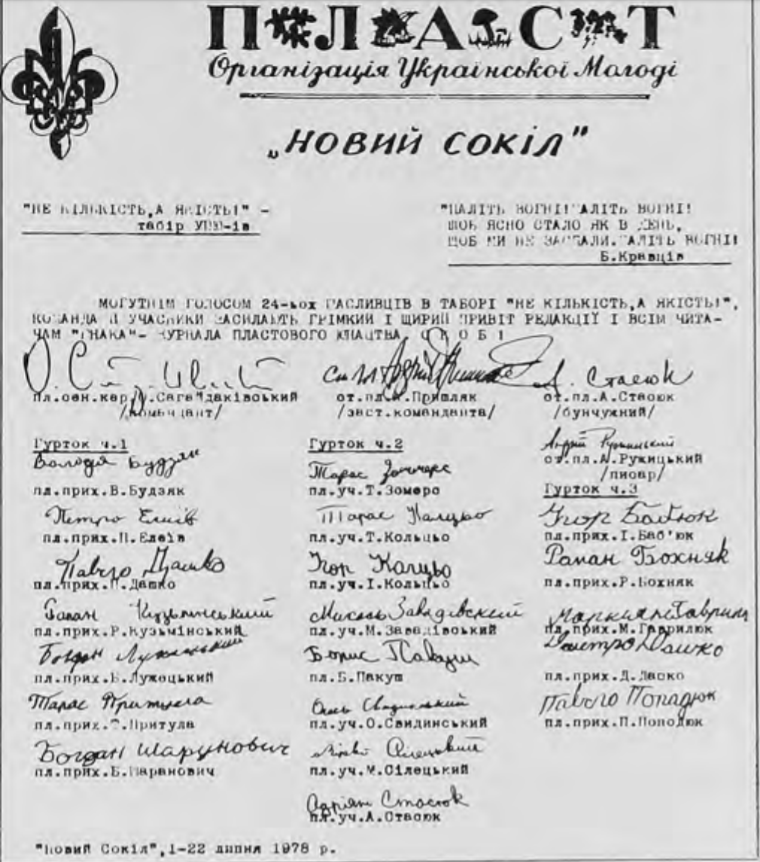 ПЛАСТ
Організація Української Молоді
„НОВИЙ СОКІЛ"
"НЕ КІЛЬКІСТЬ,А ЯКІСТЬ!" -
табір УПЮ-ів
"ПАЛІТЬ ВОГНІ! ПАЛІТЬ ВОГНІ!
ЩОБ ЯСНО СТАЛО ЯК В ДЕНЬ,
ЩОБ МИ НЕ ЗАСПАЛИ. ПАЛІТЬ ВОГНІ!
Б.Кравців
МОГУТНІМ ГОЛОСОМ 24-ьох ГАСЛИВЦІВ В ТАБОРІ "НЕ КІЛЬКІСТЬ,А ЯКІСТЬ!",
КОМАНДА Й УЧАСНИКИ ЗАСИЛАЮТЬ ГРІМКИЙ І ЩИРИЙ ПРИВІТ РЕДАКЦІЇ І ВСІМ ЧИТА-
ЧАМ "ЮНАКА"- ЖУРНАЛА ПЛАСТОВОГО ЮНАЦТВА, С К О Б !
А. Стасюк
пл.сен.кер. Сагайдаківський
от.пл. Пришляк
ст.пл.А.Стасюк
/комендант/
/заст.команданта/
/бунчужний/
Андрій Ружицький
ст.пл.А.Ружицький
/писар/
Гурток ч.1
Володя Будзяк
пл.прих.В.Будзяк
Петро Елиїв
пл.прих.П.Елеїв
Павло Дашко
пл.прих.П.Дашко
Роман Кузьмінський
пл.прих.Р.Кузьмінський
Богдан Лужецький
пл.прих.Б.Лужецький
Тарас Притула
пл.прих.Т.Притула
Богдан Шарунович
пл.прих.Б.Шаранович
Гурток ч.2
Тарас
пл.уч.Т.Зомеро
Тарас Кольцьо
пл.уч.Т.Кольцьо
Ігор Кольцьо
пл.уч.І.Кольцьо
Завадівский
пл.уч.М.Завадівський
Борис Пакуш
пл.Б.Пакуш
Олесь Свидинський
пл.уч.О.Свидинський
Сілецький
пл.уч.М.Сілецький
Адріян Стасюк
пл.уч.А.Стасюк
Гурток ч.3
Ігор Бабюк
пл.прих.І.Баб'юк
Роман Бохняк
пл.прих.Р.Бохняк
Маркиян Гаврилюк
пл.прих.М.Гаврилюк
Дмитро Дашко
пл.прих.Д.Даско
Павло Попадюк
пл.прих.П.Поподюк
"Новий Сокіл",1-22 липня 1978 р.